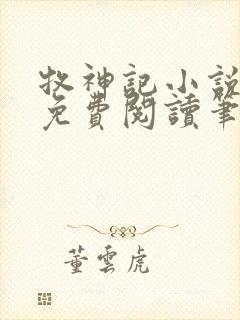 牧神記小說
免費閱讀筆
董雲虎